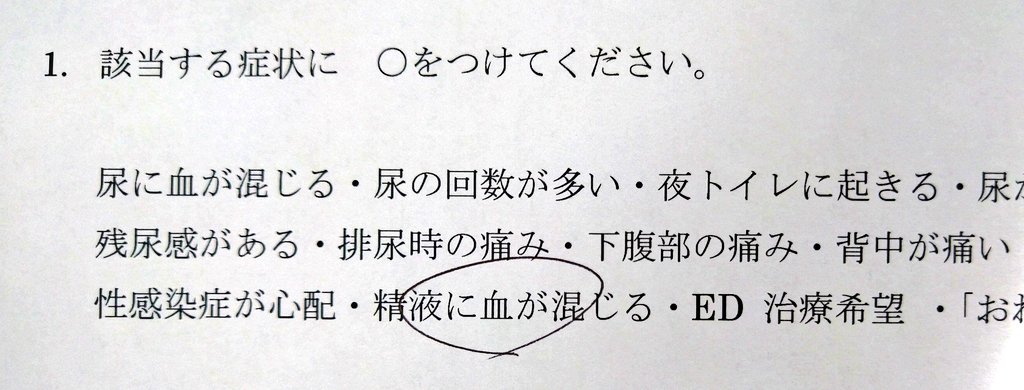 1. 該当する症状に　〇をつけてください。
尿に血が混じる・尿の回数が多い・夜トイレに起きる・尿が
残尿感がある・排尿時の痛み・下腹部の痛み・背中が痛い
性感染症が心配・精液に血が混じる・ED 治療希望 ・「おね